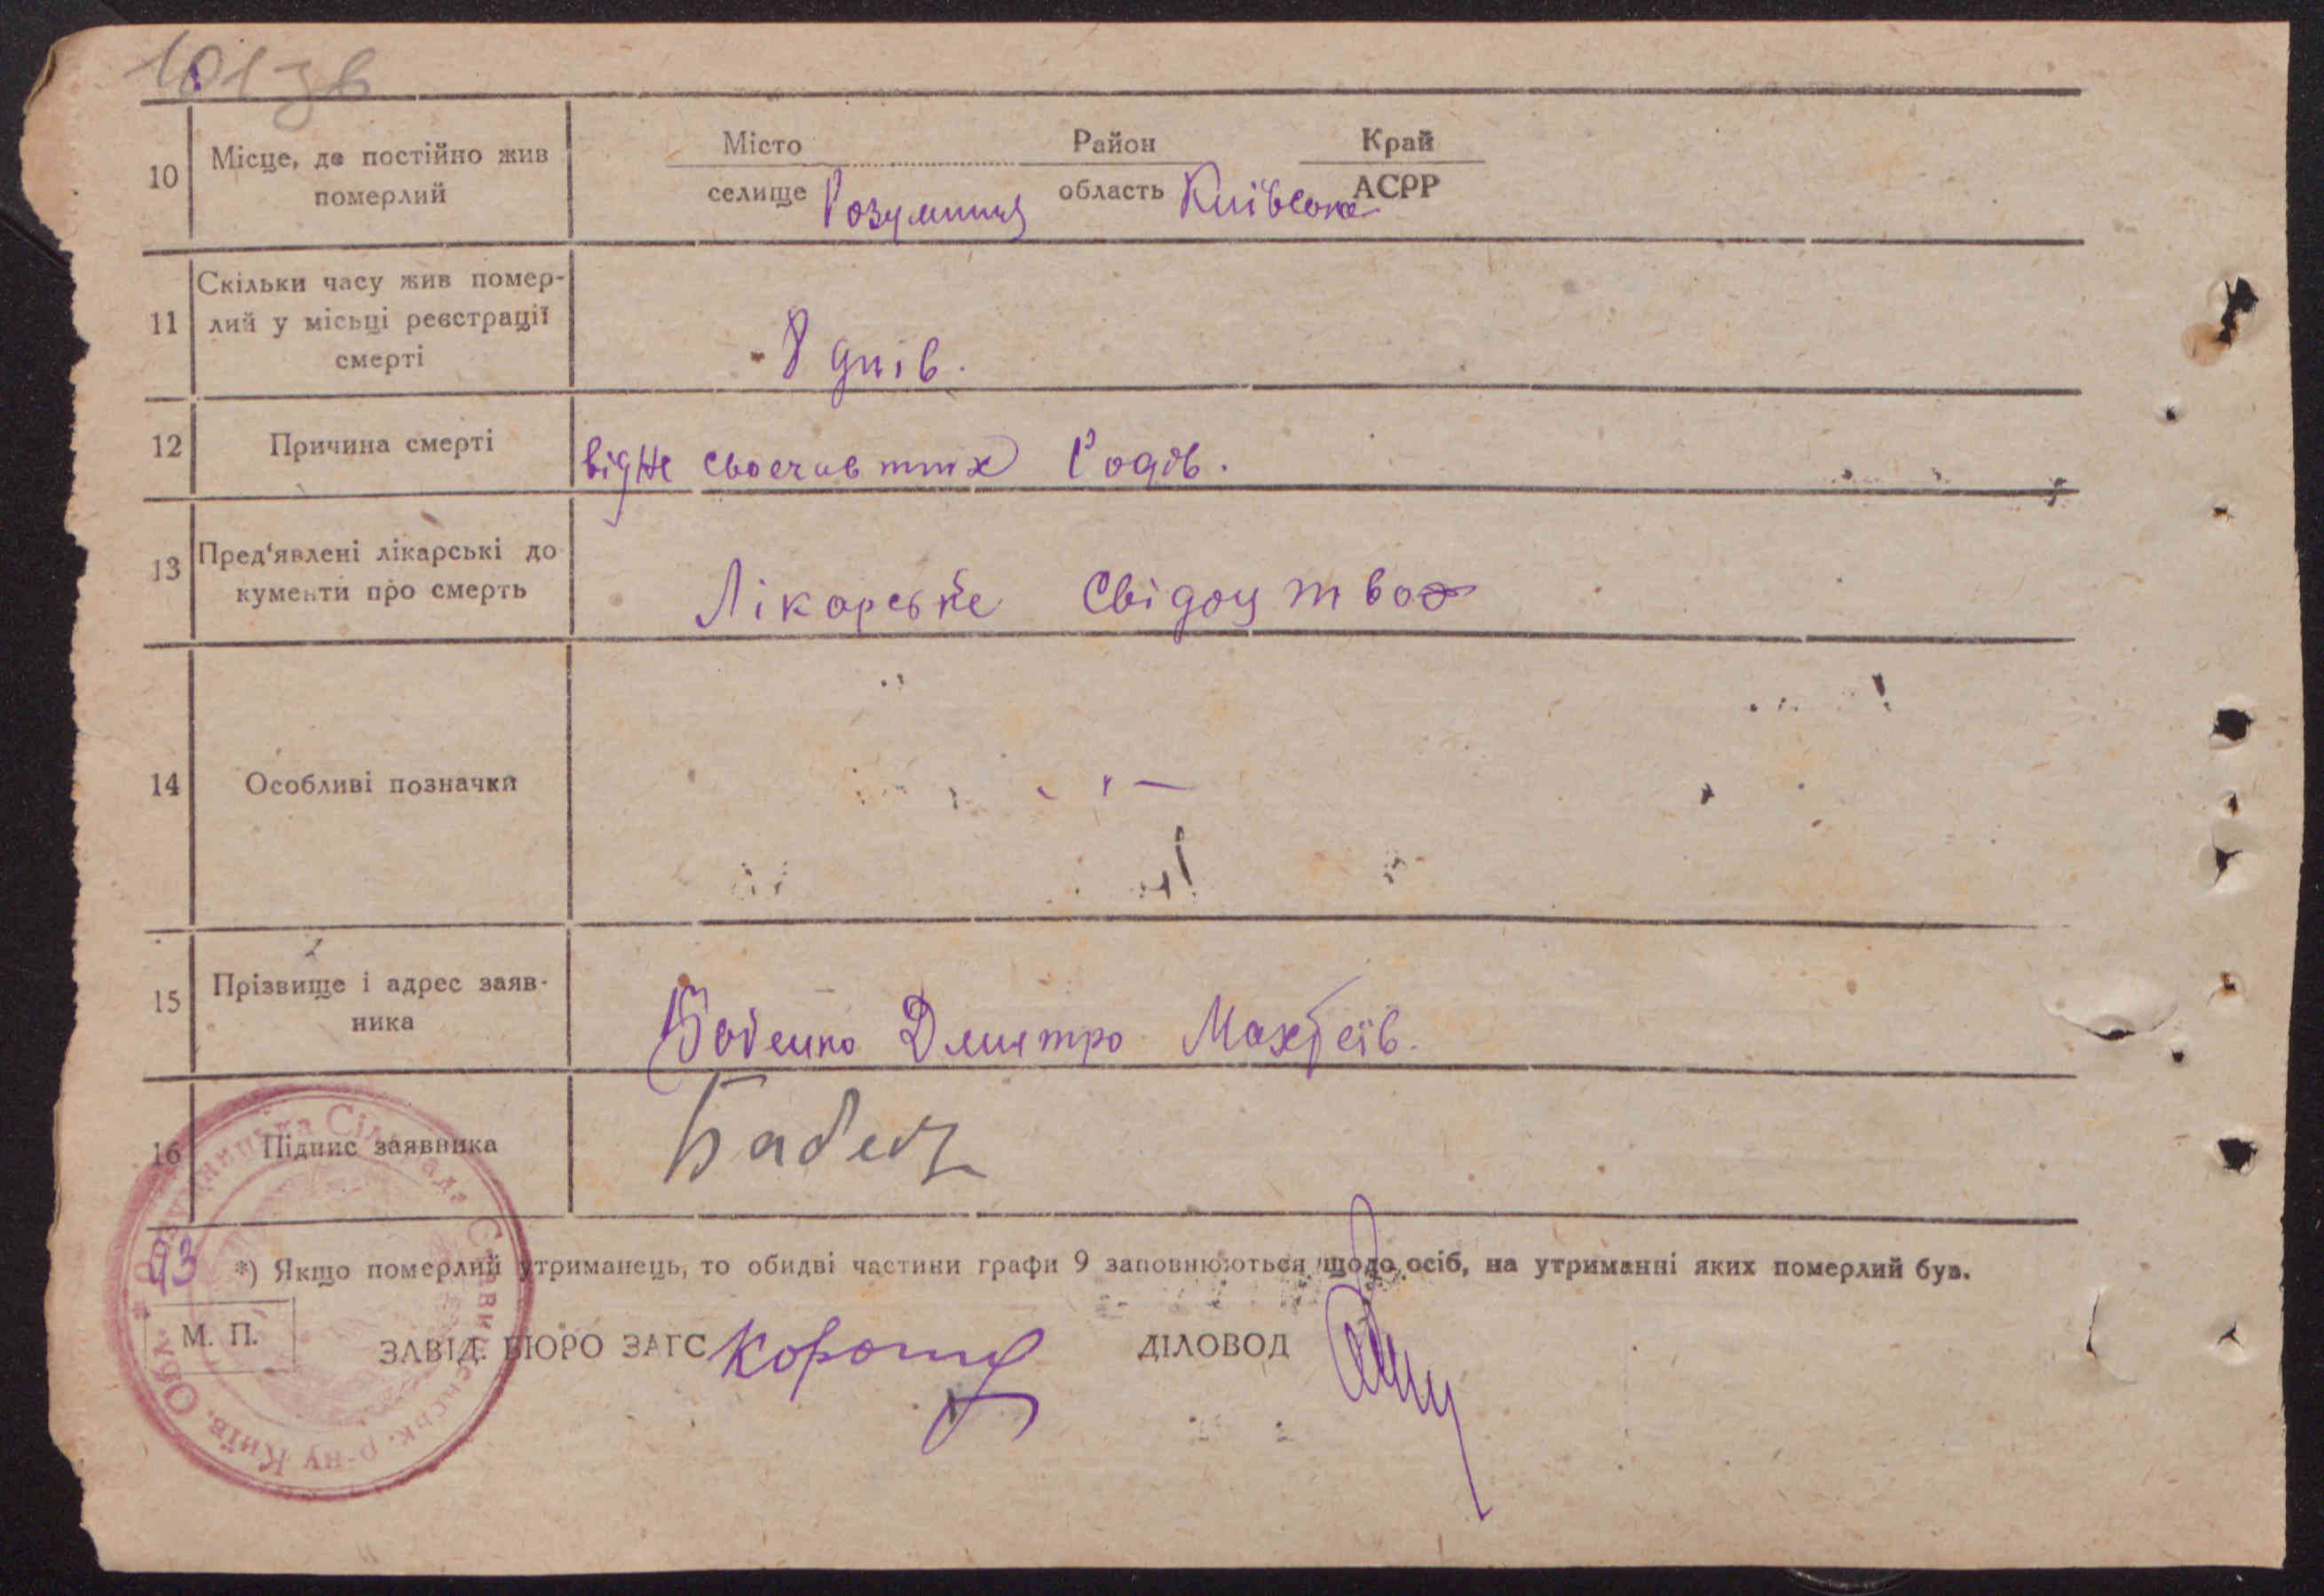 101 зв
10
Місце, де постійно жив
померлий
Місто
Район
Край
селище Розумниця область Київська АСРР
11
Скільки часу жив помер-
лий у місьці реєстрації
смерті
8 днів.
12
Причина смерті
від не своєчавтих Родов.
13
Пред'явлені лікарські до
кументи про смерть
Лікарське Свідоцтвоо
14
Особливі позначки
15
Прізвище і адрес заяв-
ника
Бабенко Дмитро Махтеїв.
16
Підпис заявника
Бабен
93
*) Якщо померлий утриманець, то обидві частини графи 9 заповнюються щодо осіб, на утриманні яких померлий був.
М. П.
ЗАВІД. БЮРО ЗАГС
ДІЛОВОД
Розумницька Сільрада Ставищенськ. р-ну Київ. Обл.